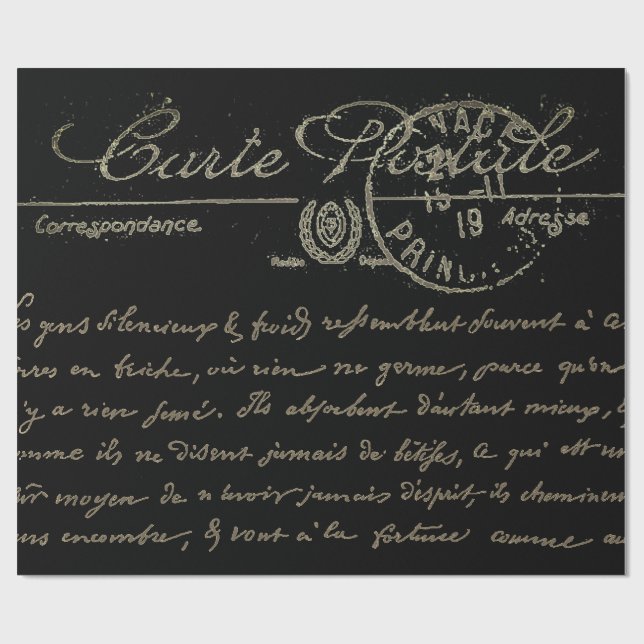 Carte Postale
NACK
15-11
19
PRIN
Correspondance
Adresse
es gens silencieux & froids ressemblent souvent à ces
rres en friche, où rien ne germe, parce qu'on
n'y a rien semé. Ils absorbent d'autant mieux, &
omme ils ne disent jamais de bêtises, ce qui est un
sûr moyen de n'avoir jamais d'esprit, ils cheminent
ans encombre, & vont à la fortune comme au